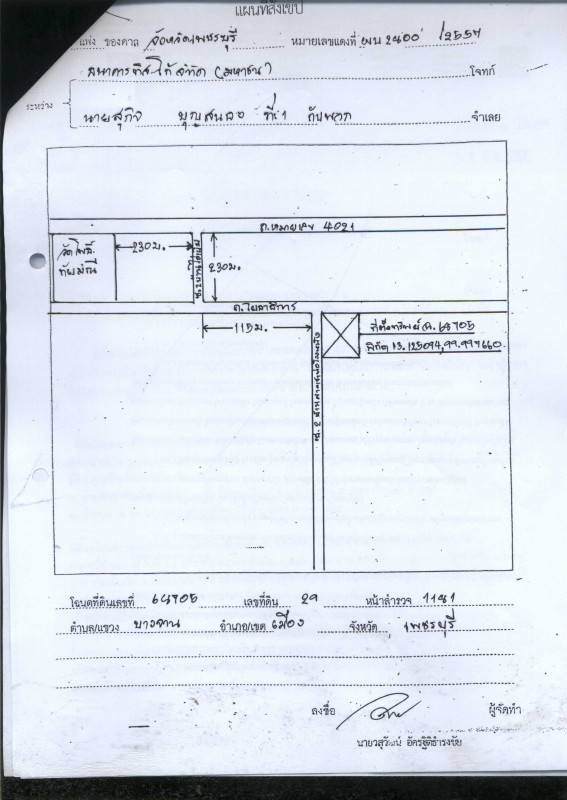 แผนที่สังเขป
แพ่ง ของศาล จังหวัดเพชรบุรี หมายเลขแดงที่ ผบ 2400 /2557
ธนาคารทิสโก้จำกัด (มหาชน) โจทก์
ระหว่าง
นายสุกิจ บุญสนอง ที่ 1 กับพวก จำเลย
ถ.หมายเลข 4021
วัดโพธิ์
ทัยมณี
230 ม.
230 ม.
ถ.โยธาธิการ
115 ม.
ที่ตั้งทรัพย์ ฉ. 64705
พิกัด 13.125094,99.997660
โฉนดที่ดินเลขที่ 64705 เลขที่ดิน 29 หน้าสำรวจ 1141
ตำบล/แขวง บางจาน อำเภอ/เขต เมือง จังหวัด เพชรบุรี
ลงชื่อ ผู้จัดทำ
นายวสุวัฒน์ อัครฐิติธำรงชัย